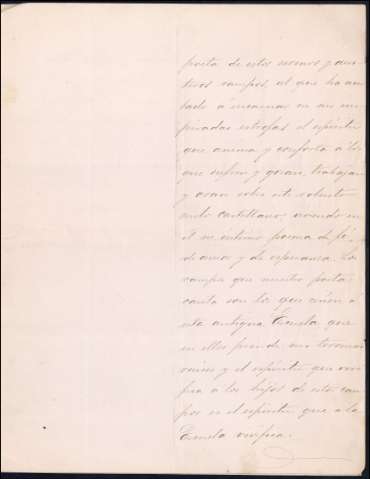 poeta de estos serenos y aus-
teros campos, al que ha acer
tado á encarnar en sus ins
piradas estrofas el espíritu
que anima y conforta á los
que sufren y gozan, trabajan
y aran sobre este robusto
suelo castellano, viviendo en
él su íntimo poema de fé,
de amor y de esperanza. Los
campos que nuestro poeta
canta son los que ciñen á
esta antigua Escuela que
en ellos prende sus
raices y el espíritu que vivi
fica a los hijos de estos cam
pos es el espíritu que a la
Escuela vivifica.